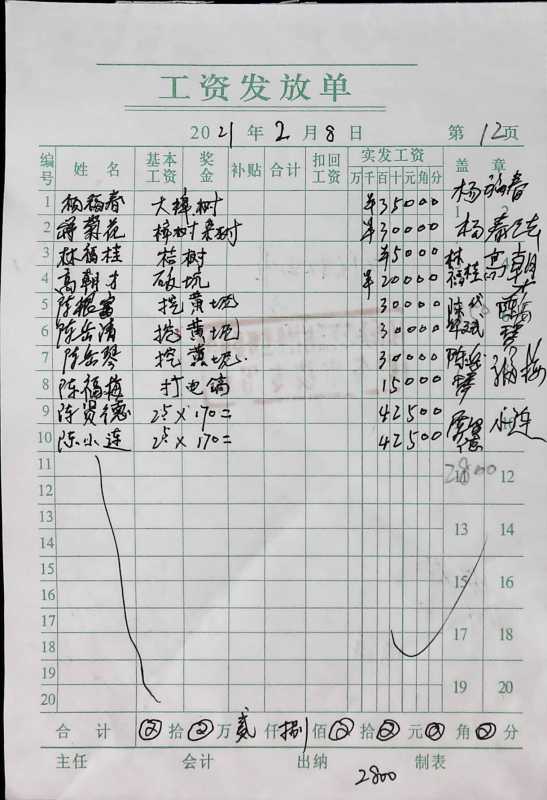 工资发放单
2021年2月8日 第12页
编号 姓名 基本工资 奖金 补贴 合计 扣回工资 实发工资 盖章
万千百十元角分
1 杨福春 大樟树 ¥35000 杨福春
2 蒋菊花 樟树杂树 ¥30000 杨春
3 林福桂 桔树 ¥5000 林福桂
4 高朝才 砍坑 ¥20000 高朝才
5 陈振富 挖黄坑 30000 陈
6 陈岳清 挖黄坑 30000
7 陈岳琴 挖黄坑 30000 陈岳琴
8 陈福梅 打电镐 15000 福梅
9 陈贤德 25×170= 42500 贤德
10 陈小连 25×170= 42500 小连
11 2800 12
12
13 13 14
14
15 15 16
16
17 17 18
18
19 19 20
20
合计 拾 万 贰 仟 捌 佰 拾 元 角 分
主任 会计 出纳 制表
2800